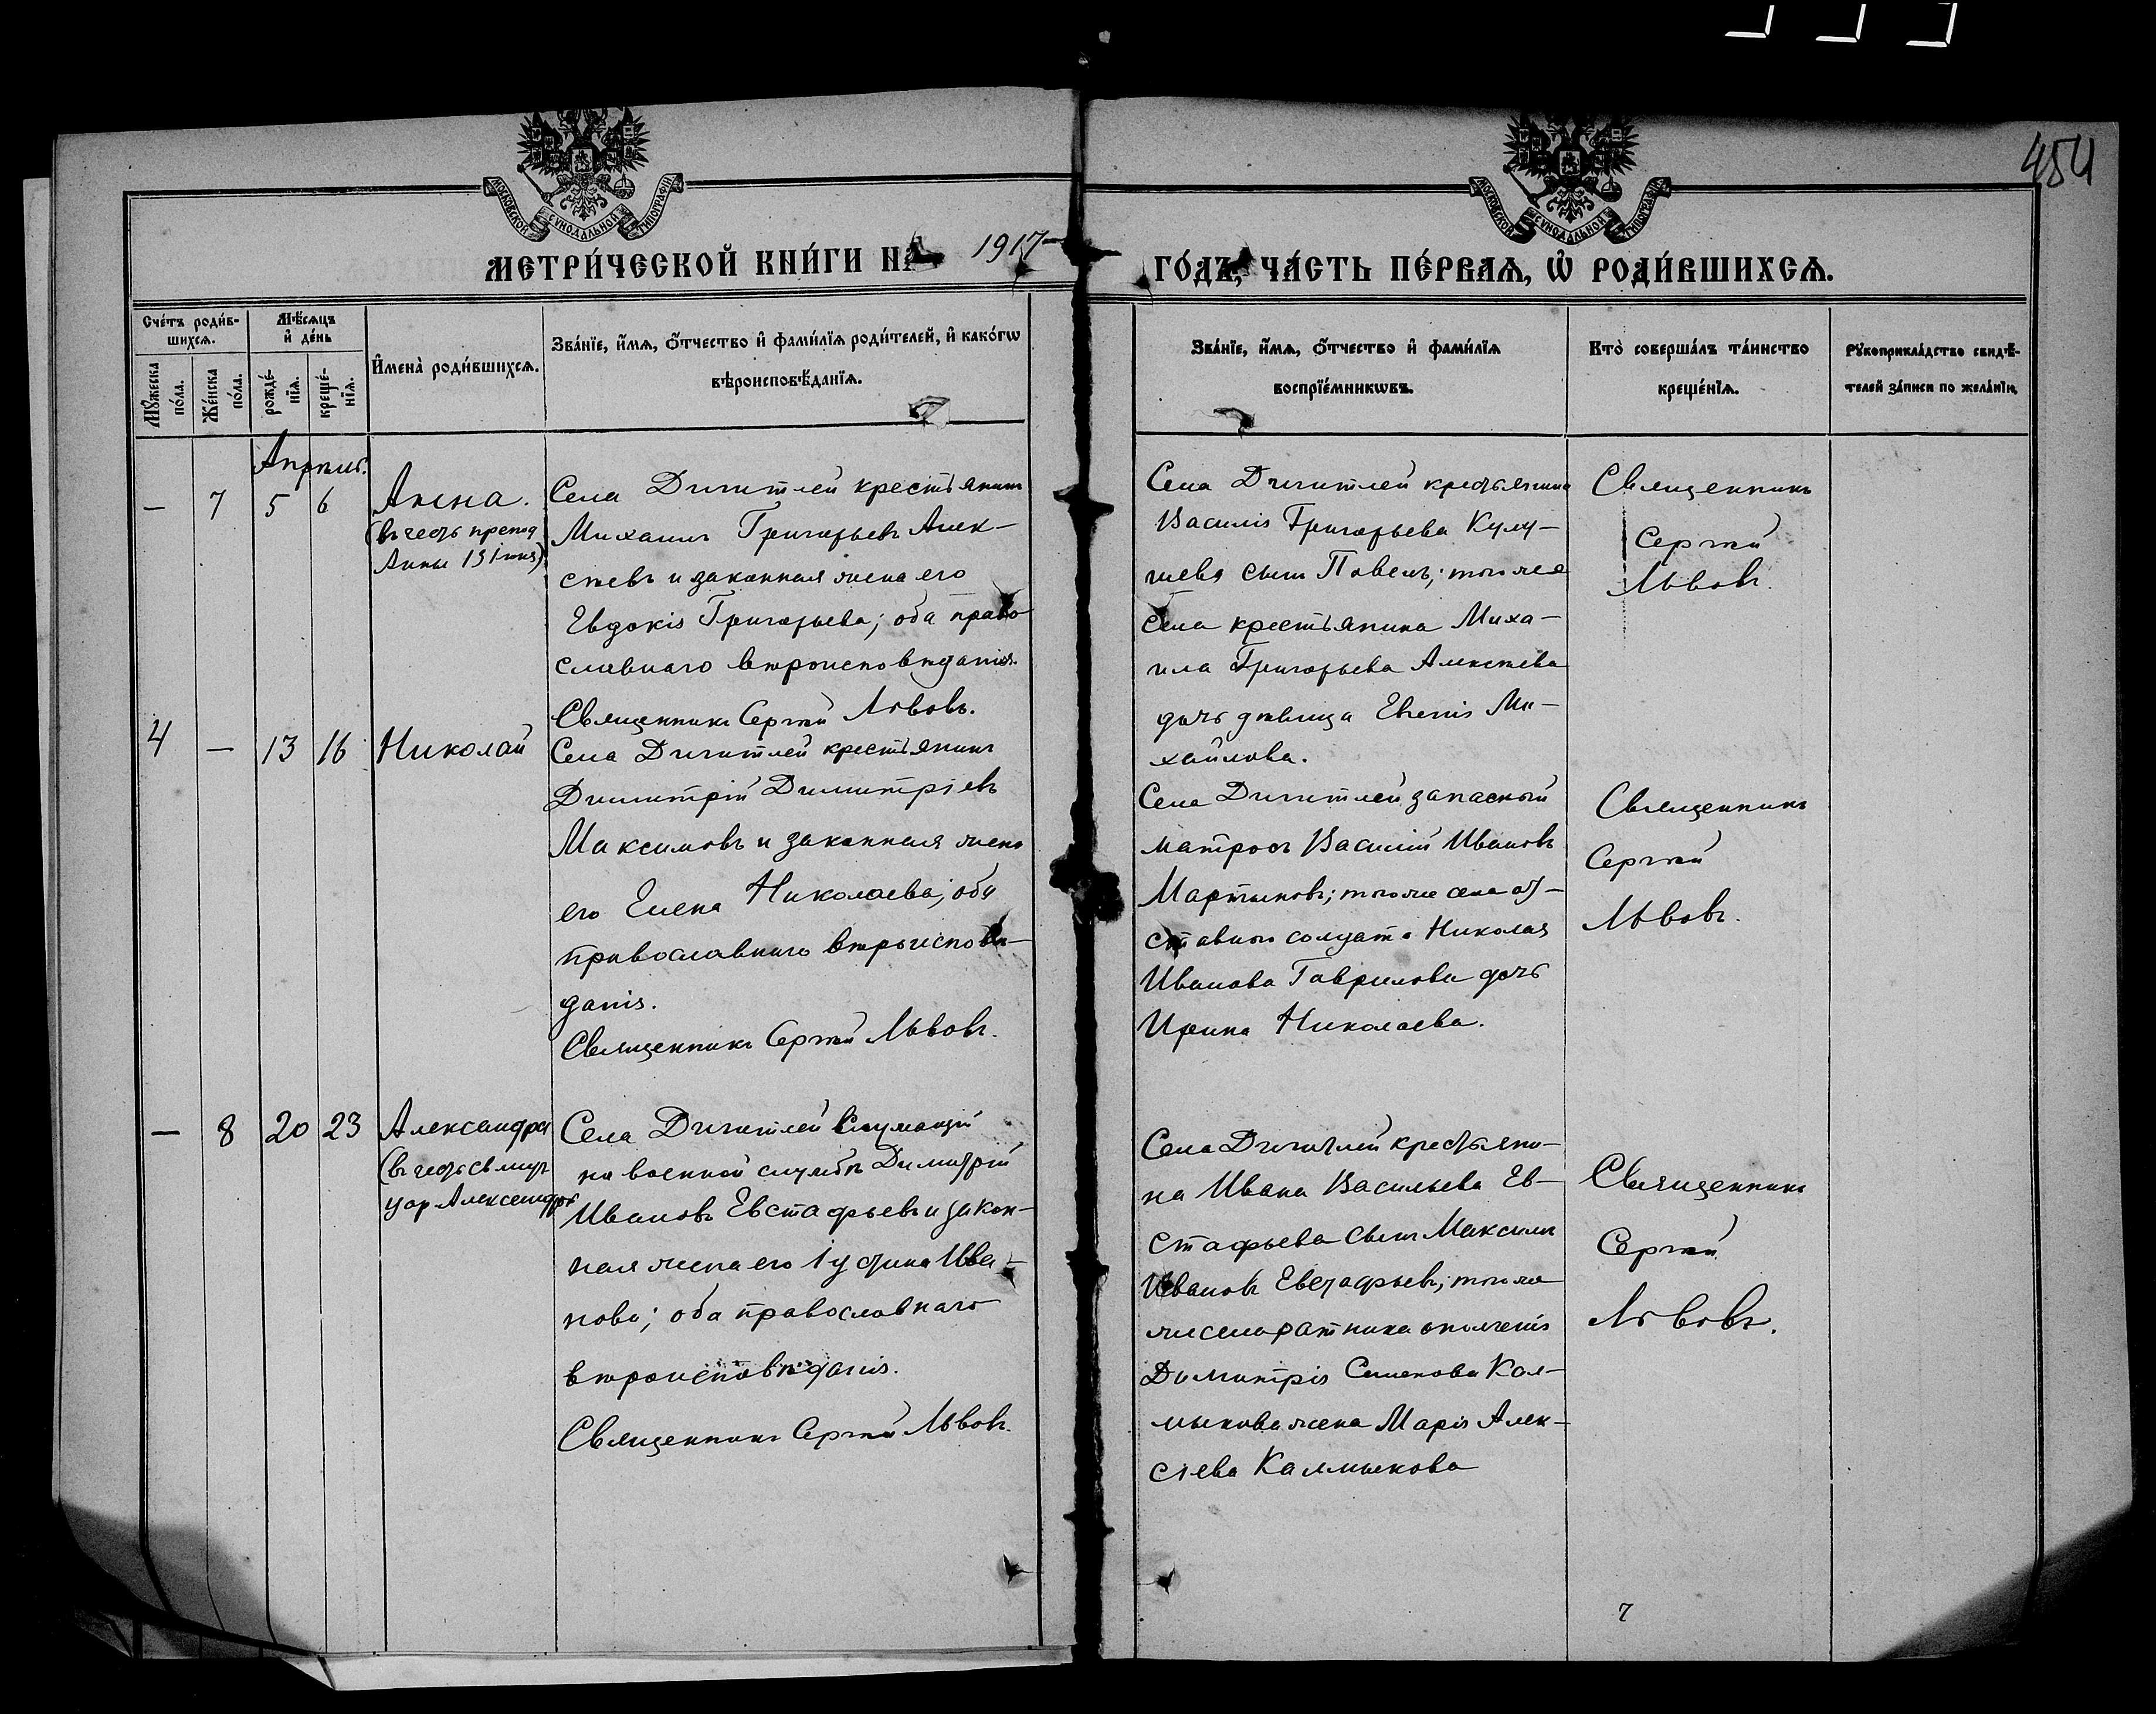 454
МОСКОВСКОЙ СѴНОДАЛЬНОЙ ТИПОГРАФІИ
МОСКОВСКОЙ СѴНОДАЛЬНОЙ ТИПОГРАФІИ
МЕТРИ́ЧЕСКОЙ КНИ́ГИ НА 1917 ГО́ДЪ, ЧА́СТЬ ПЕ́РВАѦ, Ѡ҆ РОДИ́ВШИХСѦ.
Сче́тъ роди́в-
шихсѧ.
Мѣ́сѧцъ
и҆ де́нь
Мꙋ́жеска
по́ла.
Же́нска
по́ла.
рожде́-
нїѧ.
креще́-
нїѧ.
И҆мена̀ роди́вшихсѧ.
Зва́нїе, и҆́мѧ, ѻ҆́тчество и҆ фами́лїѧ роди́телей, и҆ како́гѡ
вѣроисповѣ́данїѧ.
Зва́нїе, и҆́мѧ, ѻ҆́тчество и҆ фами́лїѧ
воспрїе́мникѡвъ.
Кто̀ соверша́лъ та́инство
креще́нїѧ.
Рꙋкоприкла́дство свидѣ́-
телей за́писи по жела́нїю.
Апрѣль.
— 7 5 6
Анна.
(въ честь препод
Анны 13 Іюня)
Села Дигитлей крестьянинъ
Михаилъ Григорьевъ Алек-
сѣевъ и законная жена его
Евдокія Григорьева; оба право
славнаго вѣроисповѣданія.
Священникъ Сергѣй Львовъ.
Села Дигитлей крестьянина
Василія Григорьева Кулу-
шева сынъ Павелъ; того же
села крестьянина Миха-
ила Григорьева Алексѣева
дочь дѣвица Евгенія Ми-
хайлова.
Священникъ
Сергѣй
Львовъ.
4 — 13 16
Николай
Села Дигитлей крестьянинъ
Димитрій Димитріевъ
Максимовъ и законная жена
его Елена Николаева; оба
православнаго вѣроисповѣ-
данія.
Священникъ Сергѣй Львовъ.
Села Дигитлей запасный
матросъ Василій Ивановъ
Мартыновъ; того же села от-
ставного солдата Николая
Иванова Гаврилова дочь
Ирина Николаева.
Священникъ
Сергѣй
Львовъ.
— 8 20 23
Александра
(въ честь св муч
цар Александры
Села Дигитлей служащій
на военной службѣ Димитрій
Ивановъ Евстафьевъ и закон-
ная жена его Іустина Ива-
нова; оба православнаго
вѣроисповѣданія.
Священникъ Сергѣй Львовъ.
Села Дигитлей крестьяни-
на Ивана Васильева Ев-
стафьева сынъ Максимъ
Ивановъ Евстафьевъ; того
же села ратника ополченія
Димитрія Семенова Кал-
мыкова жена Марія Алек-
сѣева Калмыкова
Священникъ
Сергѣй
Львовъ.
7